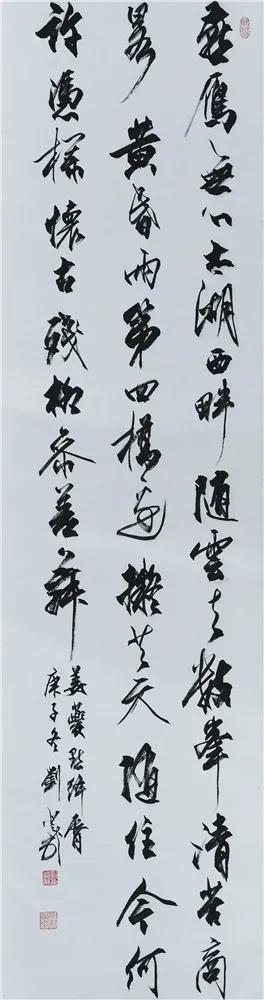 燕鴈無心太湖西畔随雲去數峯清苦商
畧黄昏雨第四橋邊擬共天随住今何
許憑欄懷古殘柳參差舞
姜夔點絳脣
庚子冬劉